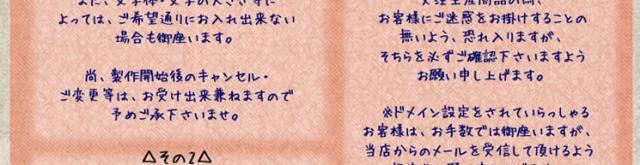 また、文字様・文字の大きさ等に
よっては、ご希望通りにお入れ出来ない
場合も御座います。
尚、製作開始後のキャンセル・
ご変更等は、お受け出来兼ねますので
予めご承下さいませ。
△その2△
お客様にご迷惑をお掛けすることの
無いよう、恐れ入りますが、
そちらを必ずご確認下さいますよう
お願い申し上げます。
※ドメイン設定をされていらっしゃる
お客様は、お手数では御座いますが、
当店からのメールを受信して頂けるよう